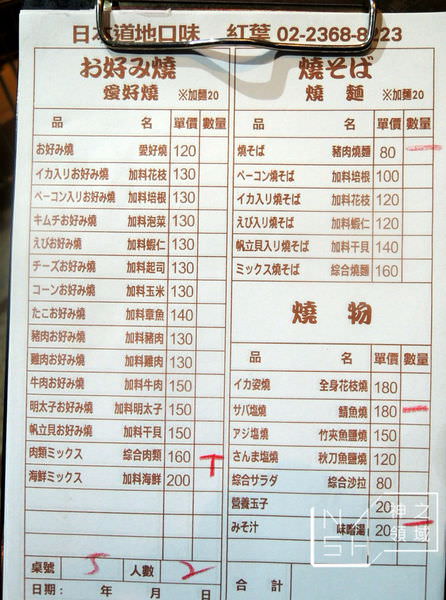 日本道地口味 紅葉 02-2368-8223
お好み燒
愛好燒 ※加麵20
品 名 單價 數量
お好み燒 愛好燒 120
イカ入りお好み燒 加料花枝 130
ベーコン入りお好み燒 加料培根 130
キムチお好み燒 加料泡菜 130
えびお好み燒 加料蝦仁 130
チーズお好み燒 加料起司 130
コーンお好み燒 加料玉米 130
たこお好み燒 加料章魚 140
豬肉お好み燒 加料豬肉 130
雞肉お好み燒 加料雞肉 130
牛肉お好み燒 加料牛肉 150
明太子お好み燒 加料明太子 150
帆立貝お好み燒 加料干貝 150
肉類ミックス 綜合肉類 160
海鮮ミックス 加料海鮮 200
桌號 5 人數 2
日期: 年 月 日
燒そば
燒麵 ※加麵20
品 名 單價 數量
燒そば 豬肉燒麵 80
ベーコン燒そば 加料培根 100
イカ入り燒そば 加料花枝 120
えび入り燒そば 加料蝦仁 120
帆立貝入り燒そば 加料干貝 140
ミックス燒そば 綜合燒麵 160
燒物
品 名 單價 數量
イカ姿燒 全身花枝燒 180
サバ塩燒 鯖魚燒 180
アジ塩燒 竹夾魚鹽燒 150
さんま塩燒 秋刀魚鹽燒 120
綜合サラダ 綜合沙拉 80
營養玉子 20
みそ汁 味噌湯 20
合計
神之領域